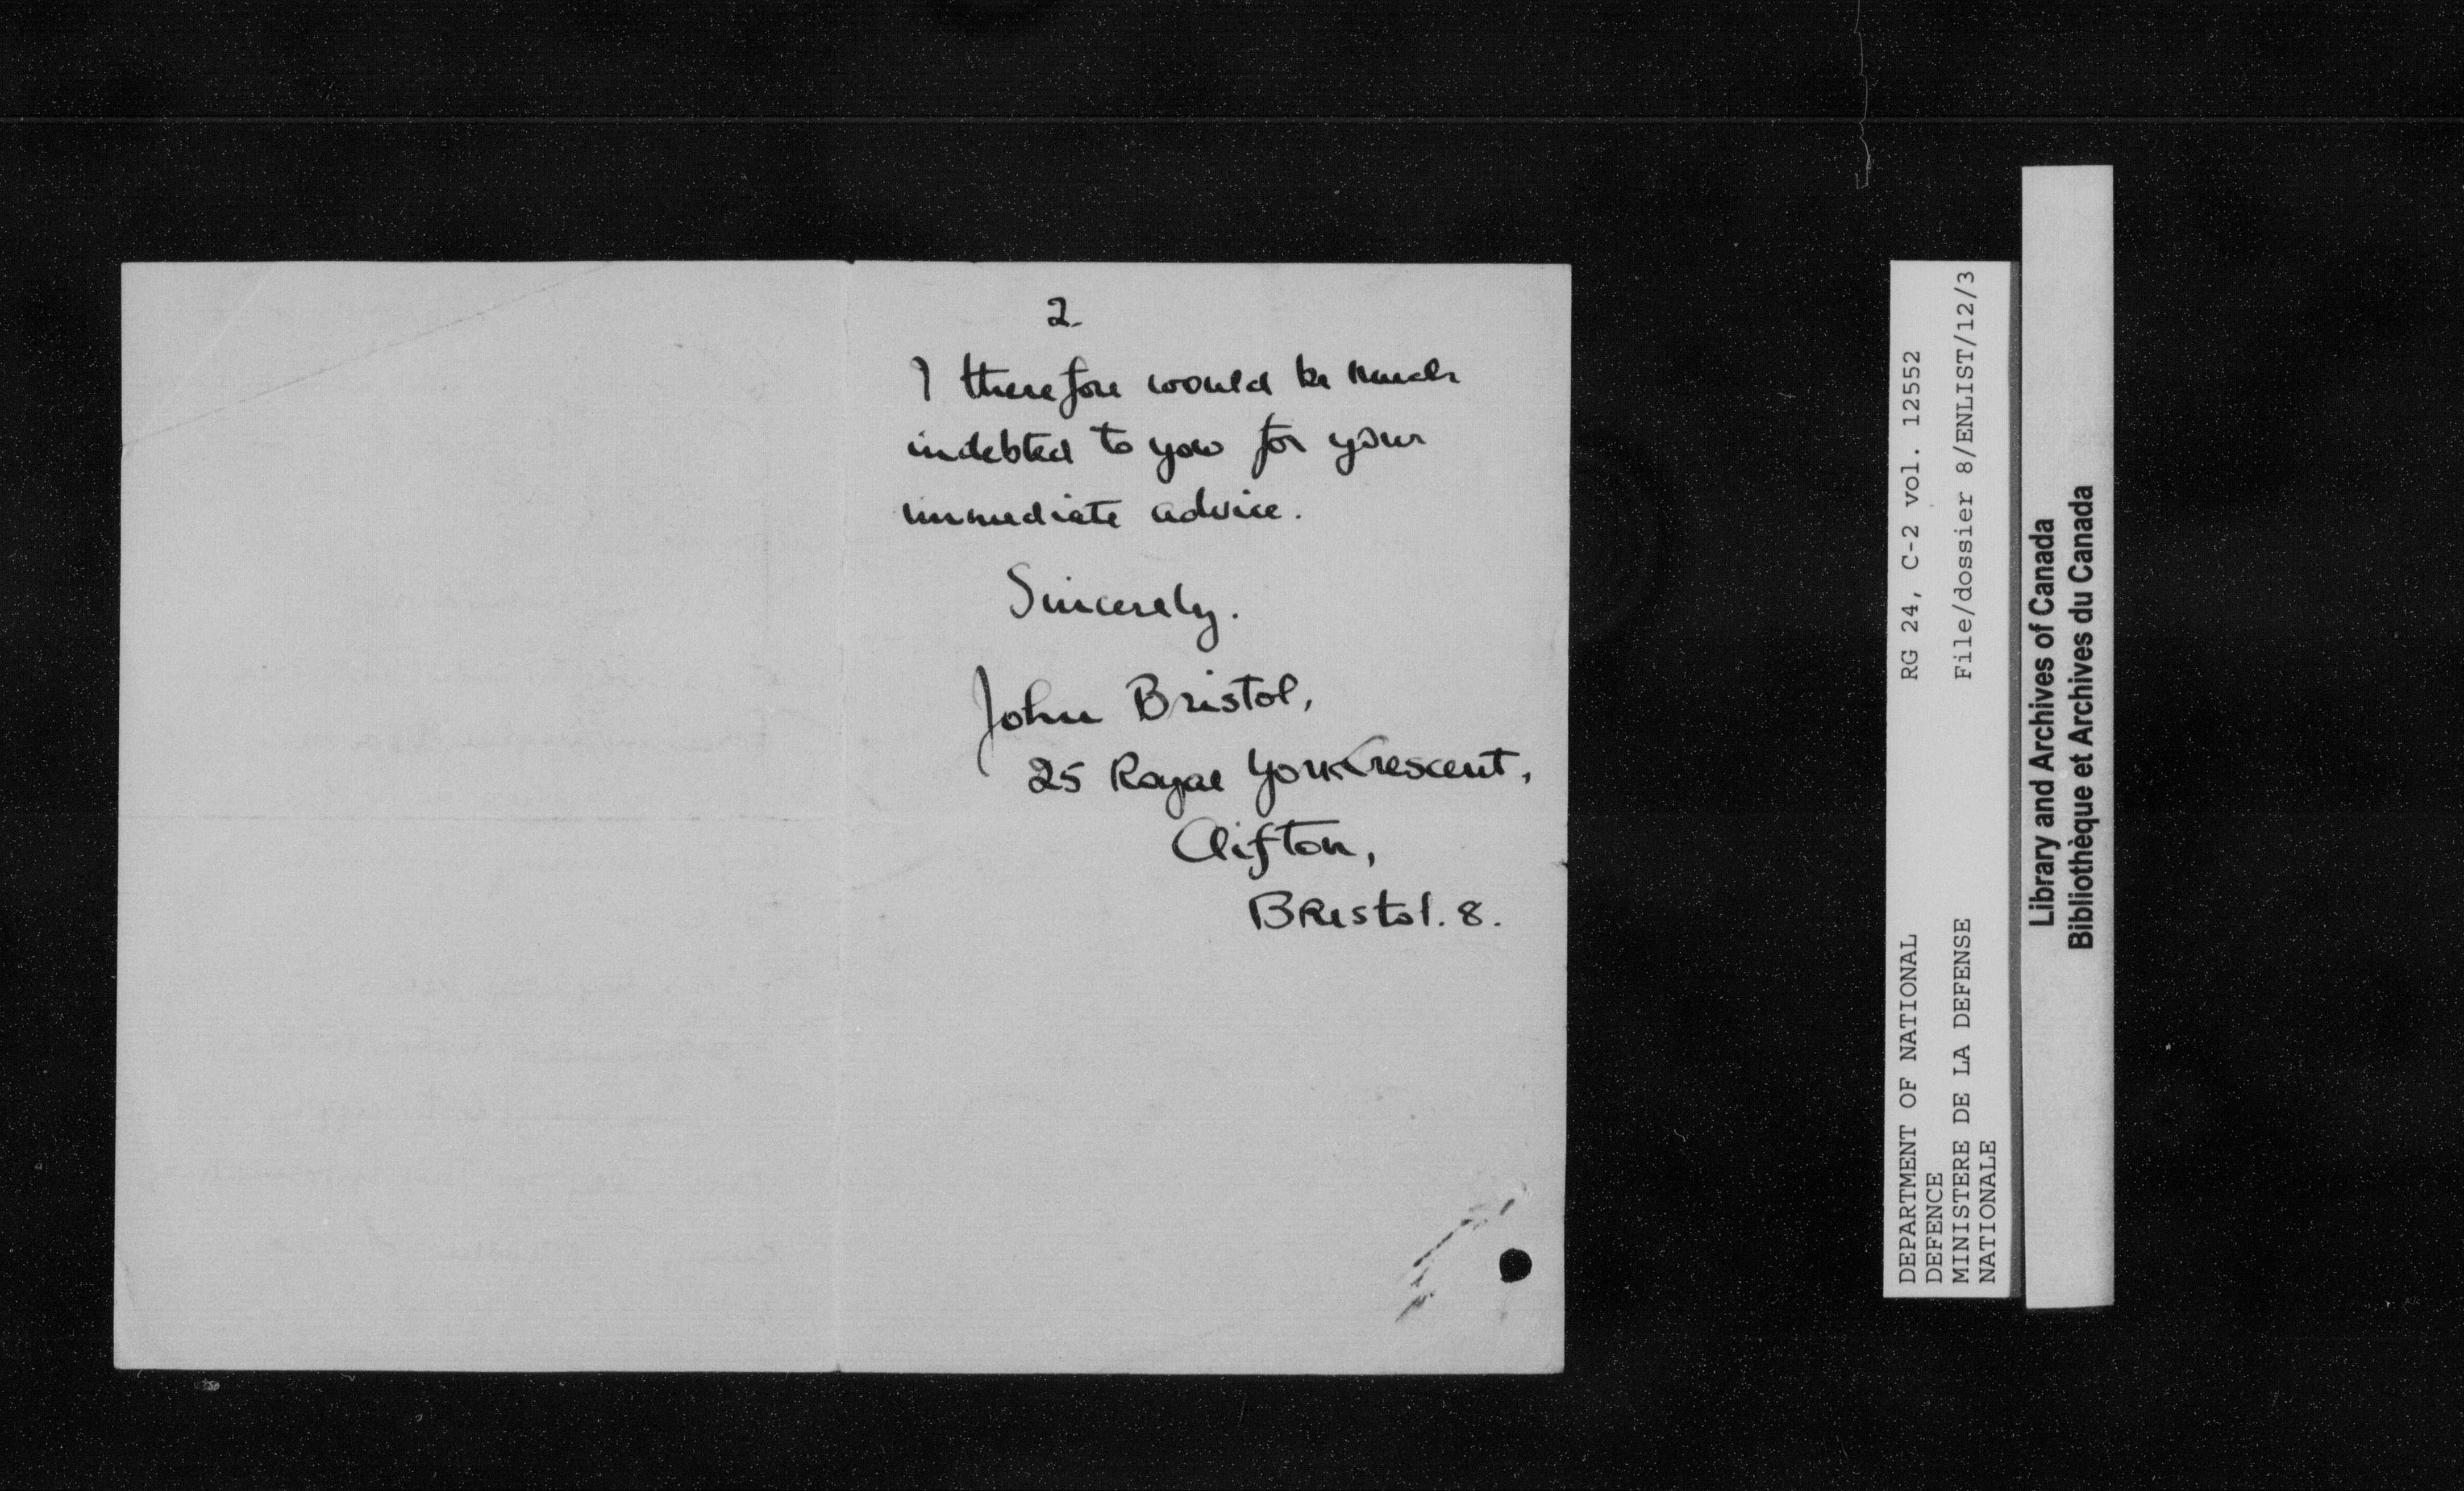 2.
I therefore would be much
indebted to you for your
immediate advice.
Sincerely.
John Bristol,
25 Royal York Crescent,
Clifton,
Bristol. 8.
DEPARTMENT OF NATIONAL
DEFENCE
MINISTERE DE LA DEFENSE
NATIONALE
RG 24, C-2 vol. 12552
File/dossier 8/ENLIST/12/3
Library and Archives of Canada
Bibliothèque et Archives du Canada